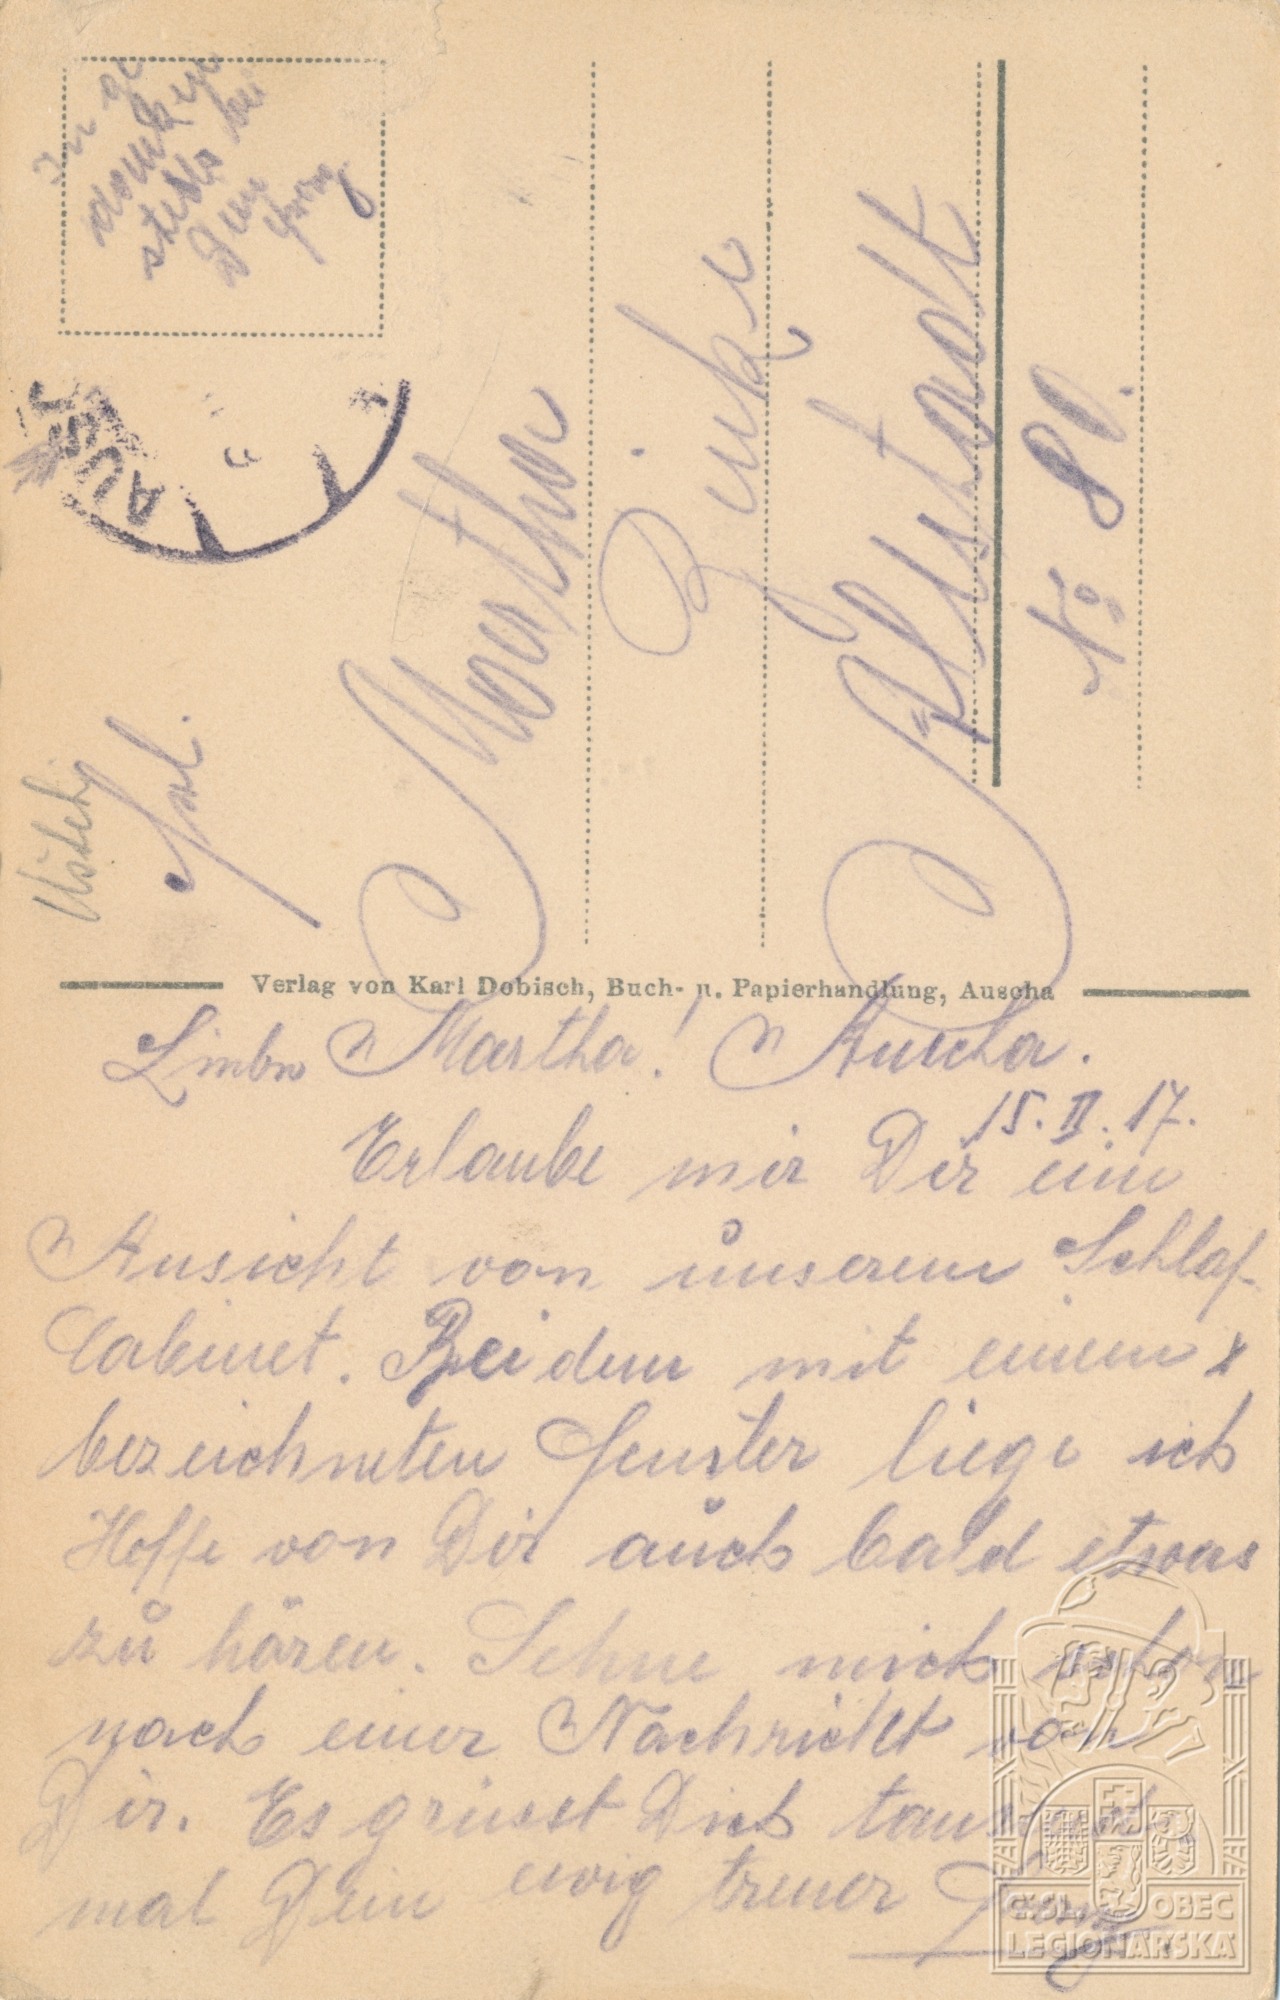 Frl.
Martha
Zinke
Altstadt
No 80.
AUSC
Verlag von Karl Dobisch, Buch- u. Papierhandlung, Auscha
Martha! Auscha.
15. II. 17.
Erlaube mir Dir eine
Ansicht von unserem Schlaf-
Cabinet. Bei dem mit einem x
bezeichneten Fenster liege ich
Hoffe von Dir auch bald etwas
zu hören. Sehne mich schon
nach einer Nachricht von
Dir. Es grüsst Dich tausend
mal Dein ewig treuer Franz
ČSL. OBEC
LEGIONÁŘSKÁ